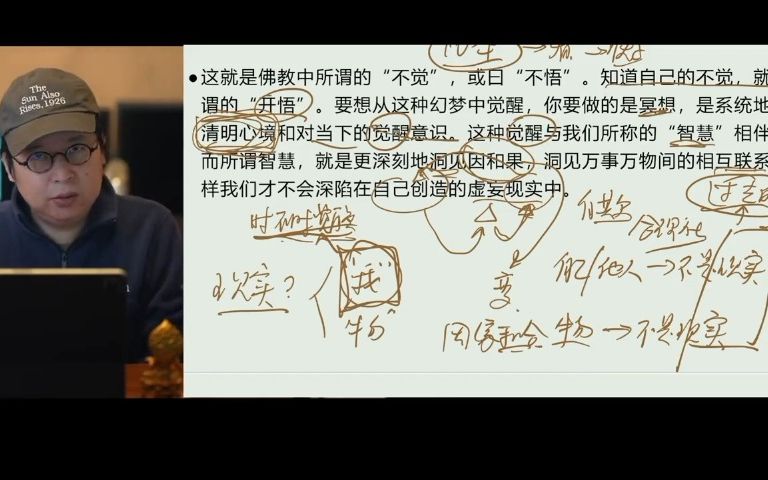 ●这就是佛教中所谓的“不觉”，或曰“不悟”。知道自己的不觉，就
谓的“开悟”。要想从这种幻梦中觉醒，你要做的是冥想，是系统地
清明心境和对当下的觉醒意识。这种觉醒与我们所称的“智慧”相伴
而所谓智慧，就是更深刻地洞见因和果，洞见万事万物间的相互联系
样我们才不会深陷在自己创造的虚妄现实中。
The
Sun Also
Rises, 1926
现实？
“我”
物
变
他人→不是现实
因缘和合 物→不是现实